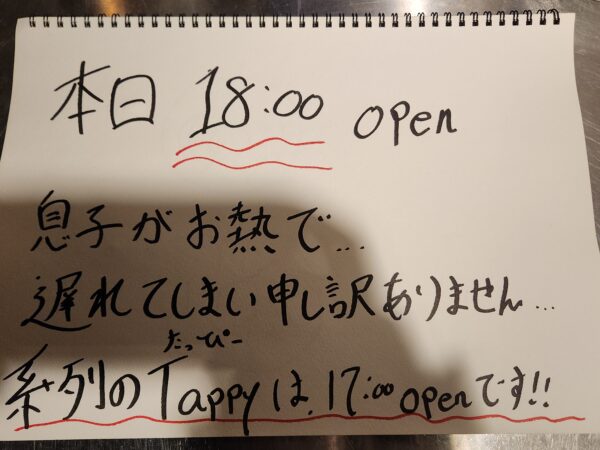 本日 18:00 open
息子がお熱で...
遅れてしまい申し訳ありません...
たっぴー
系列のTappyは、17:00 openです!!